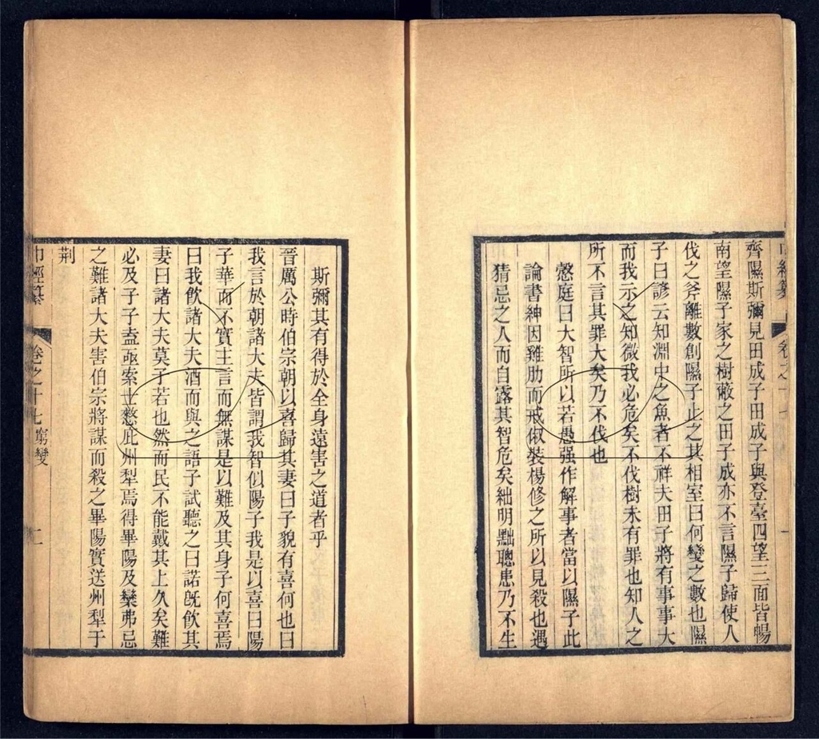 齊隰斯彌見田成子田成子與登臺四望三面皆暢
南望隰子家之樹蔽之田子成亦不言隰子歸使人
伐之斧離數創隰子止之其相室曰何變之數也隰
子曰諺云知淵中之魚者不祥夫田子將有事事大
而我示之知微我必危矣不伐樹未有罪也知人之
所不言其罪大矣乃不伐也
愨庭曰大智所以若愚强作解事者當以隰子此
論書紳因雞肋而戒俶裝楊修之所以見殺也遇
猜忌之人而自露其智危矣絀明黜聰患乃不生
斯彌其有得於全身遠害之道者乎
晉厲公時伯宗朝以喜歸其妻曰子貌有喜何也曰
我言於朝諸大夫皆謂我智似陽子我是以喜曰陽
子華而不實主言而無謀是以難及其身子何喜焉
曰我飲諸大夫酒而與之語子試聽之曰諾旣飲其
妻曰諸大夫莫子若也然而民不能戴其上久矣難
必及子子盍亟索士憖庇州犁焉得畢陽及欒弗忌
之難諸大夫害伯宗將謀而殺之畢陽實送州犁于
荆
巾經纂 卷之十七 窮變 二